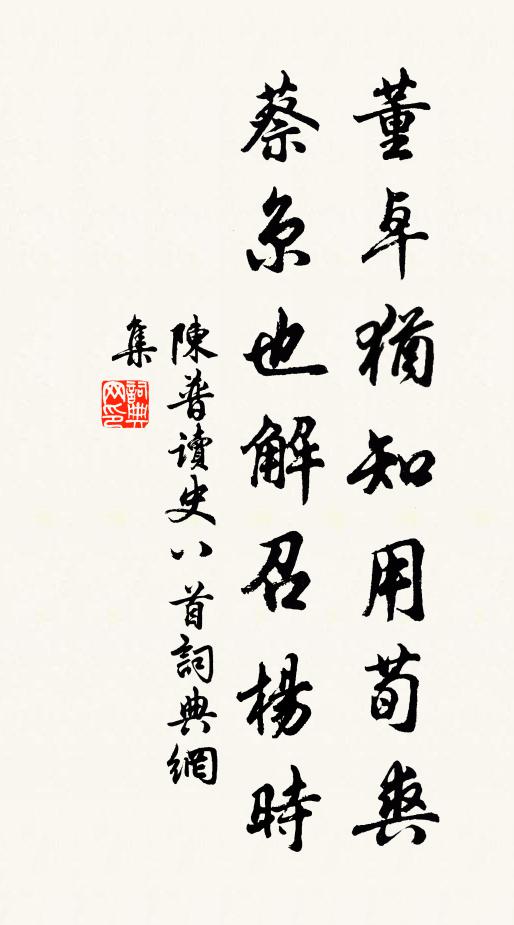 董卓猶知用荀爽
蔡京也解召楊時
陳普讀史八首詞典網
集
詞典网印